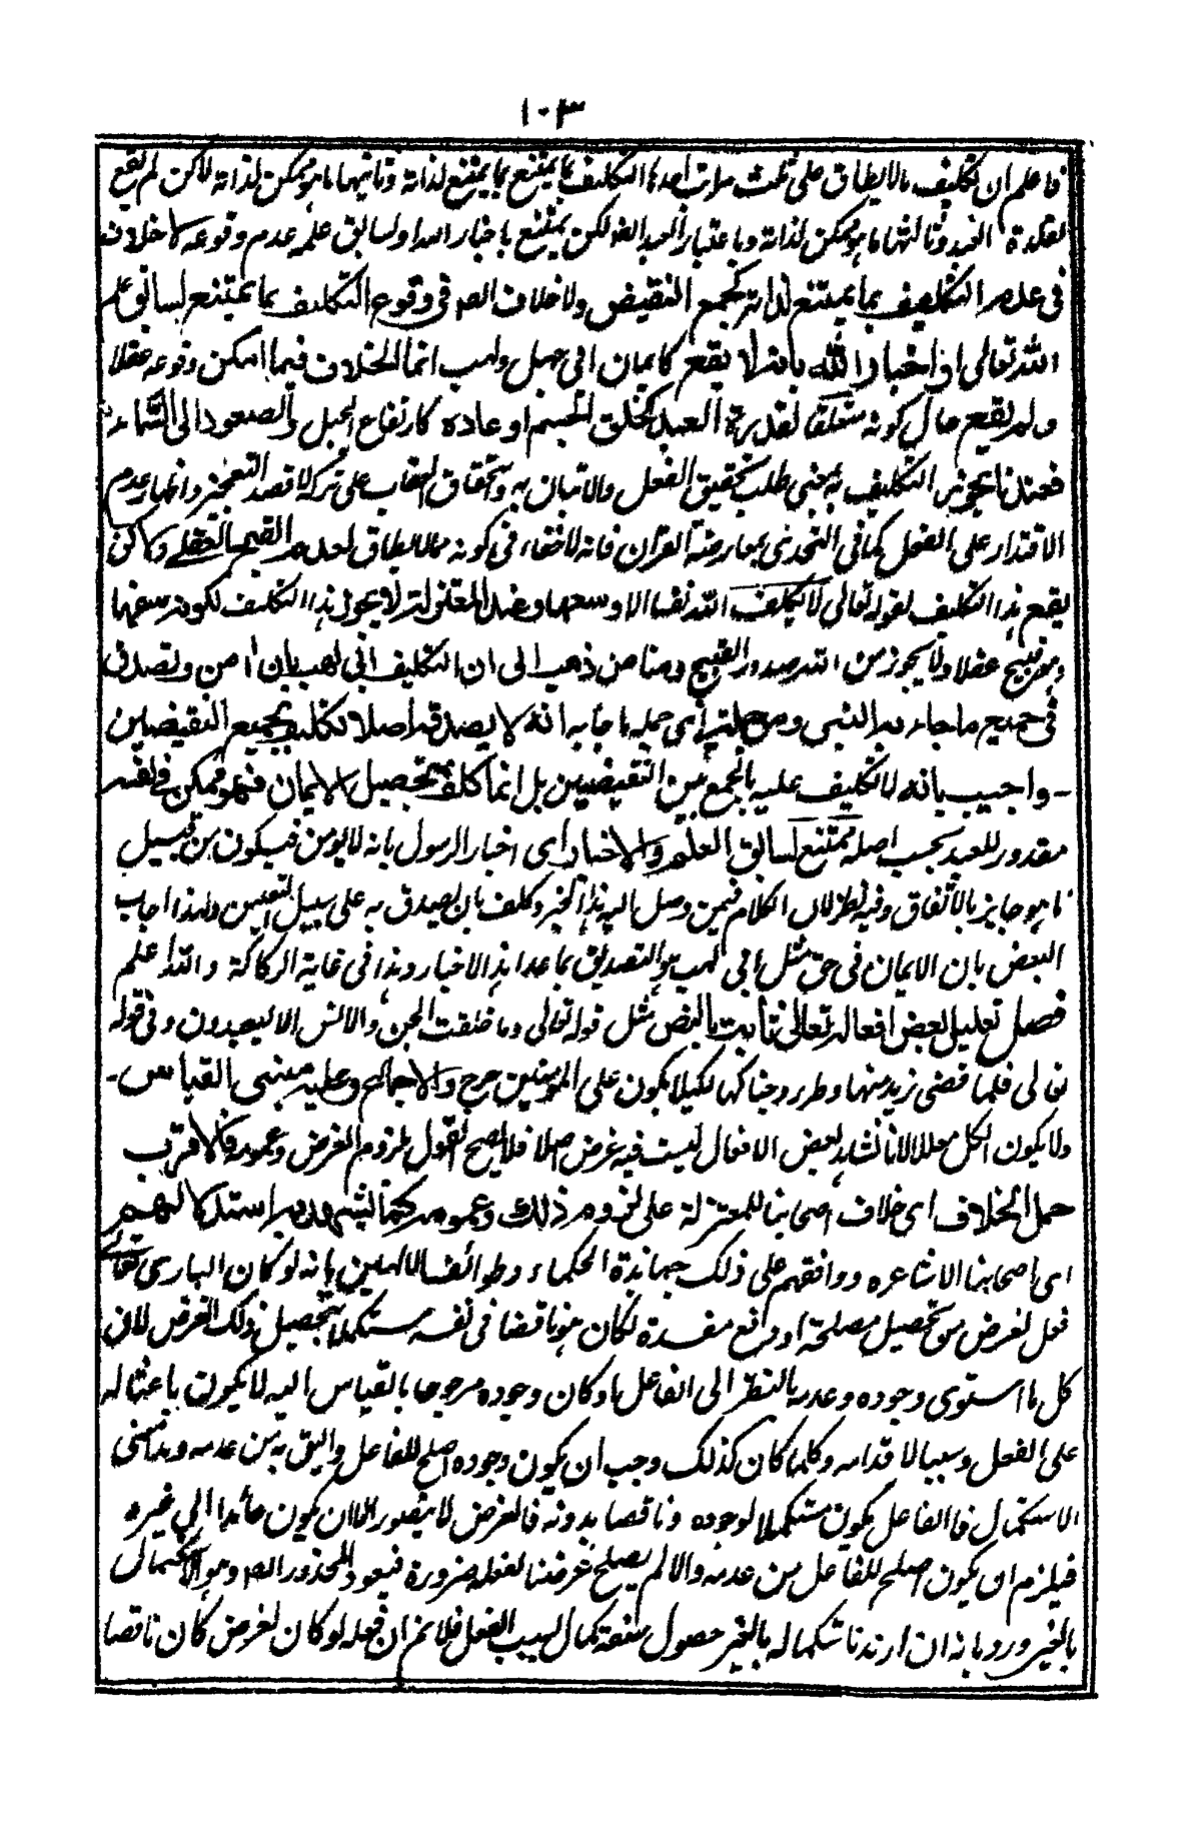 ١٠٣
فاعلم ان تكليف مالايطاق على ثلث مراتب احدها التكليف بما يمتنع لذاته وثانيها ما هو ممكن لذاته لاكن لم يقع
لقدرة العبد وثالثها ما هو ممكن لذاته وباعتبار العبد ايضا لكن يمتنع باخبار الله او لسابق علمه عدم وقوعه لاخلاف
فى عدم التكليف بما يمتنع لذاته كجمع النقيض ولا خلاف ايضا فى وقوع التكليف بما يمتنع لسابق علم
الله تعالى او اخبار الله بانه لا يقع كايمان ابى جهل ولهب انما الخلاف فيما امكن وقوعه عقلا
ولم يقع حال كونه متعلقا لقدرة العبد كخلق الجسم او عاده كارتفاع الجبل والصعود الى السماء
فعندنا يجوز التكليف به بمعنى طلب تحقيق الفعل والاتيان به واستحقاق العقاب على تركه لا قصد التعجيز واظهار عدم
الاقتدار على الفعل كما فى التحدى بمعارضة القران فانه لا خفاء فى كونه مما لا يطاق لعدم القبح العقلے ولاكن
يقع هذا التكليف لقوله تعالى لا يكلف الله نفسا الا وسعها وعند المعتزلة لا يجوز هذا التكليف لكونه سفها
وهو قبيح عقلا ولا يجوز من الله صدور القبيح ومنا من ذهب الى ان التكليف ابى لهب بان امن وتصدق
فى جميع ما جاء به النبى ومن جملته اى جمله ما جاء به انه لا يصدقه اصلا تكليف بجميع النقيضين
- واجيب بانه لا تكليف عليه بالجمع بين النقيضين بل انما كلف بتحصيل الايمان فهو ممكن فى نفسه
مقدور للعبد بحسب اصله ممتنع لسابق العلم والاخبار اى اخبار الرسول بانه لا يومن فيكون من قبيل
ما هو جايز بالاتفاق وفيه نظر لان الكلام فيمن وصل اليه هذا الخبر وكلف بان يصدق به على سبيل التعيين ولهذا اجاب
البعض بان الايمان فى حق مثل ابى لهب هو التصديق بما عدا هذا الاخبار وهذا فى غاية الركاكة والله اعلم
فصل تعليل بعض افعاله تعالى ثابت بالنص مثل قوله تعالى وما خلقت الجن والانس الا ليعبدون وفى قوله
تعالى فلما قضى زيد منها وطرا زوجناكها لكيلا يكون على المومنين حرج والاجماع وعليه مبنى القياس -
ولا يكون الكل معللا لانا نشاهد بعض الافعال ليست فيه غرض اصلا فلا يصح القول بلزوم الغرض وعمومه فالاقرب
حمل الخلاف اى خلاف اصحابنا للمعتزلة على لزوم ذلك وعمومه كما يشهد به استدلالهم
اى اصحابنا الاشاعره ووافقهم على ذلك جهابذة الحكماء وطوائف الالهيين بانه لو كان البارى تعالى
فعل لغرض من تحصيل مصلحة او دفع مفسدة لكان هو ناقصا فى نفسه مستكملا بتحصيل ذلك الغرض لان
كل ما استوى وجوده وعدمه بالنظر الى الفاعل او كان وجوده مرجوحا بالقياس اليه لا يكون باعثا له
على الفعل وسببا لاقدامه وكلما كان كذلك وجب ان يكون وجوده اصلح للفاعل واليق به من عدمه وهذا معنى
الاستكمال فالفاعل يكون مستكملا لوجوده وناقصا بدونه فالغرض لا يتصور الا ان يكون عائدا الى غيره
فيلزم ان يكون اصلح للفاعل من عدمه والا لم يصلح غرضنا لفعله ضرورة فيعود المحذور ايضا وهو الاستكمال
بالغير ورد بانه ان اردتم باستكماله بالغير حصول صفة كمال بسبب الفعل فلا نم ان فعله لو كان لغرض كان ناقصا